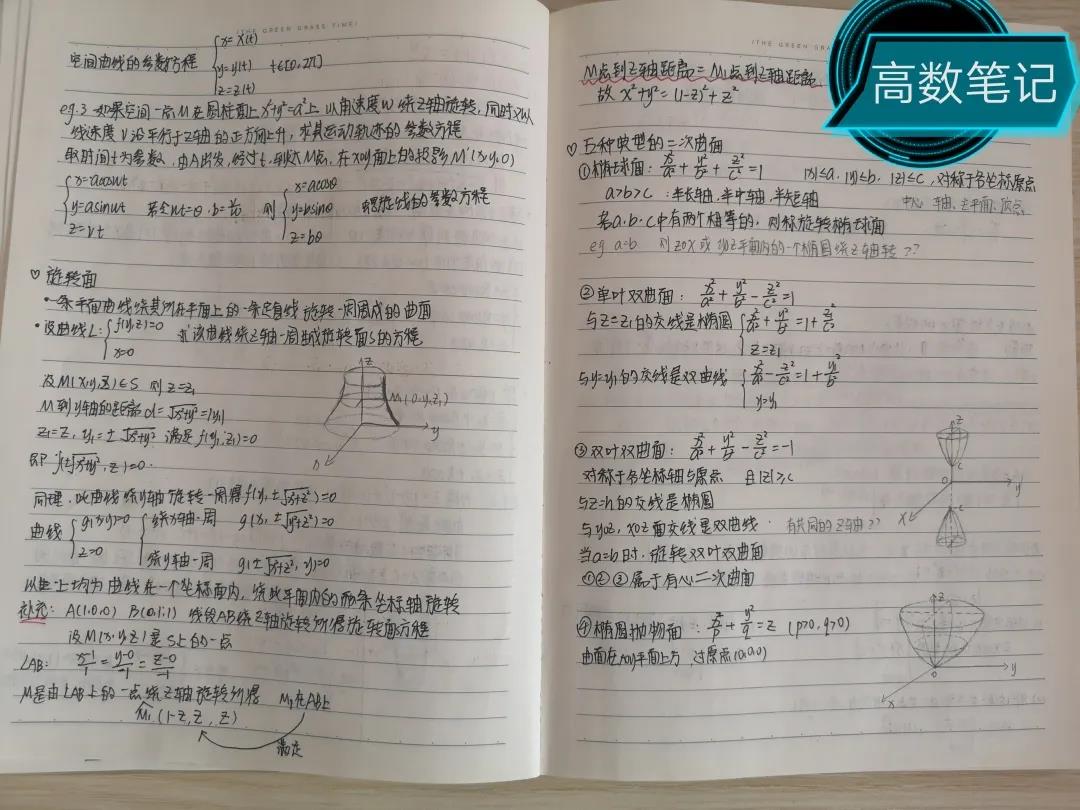 (THE GREEN GRASS TIME)
空间曲线的参数方程 { x=x(t) y=y(t) z=z(t) t∈[0,2π]
eg.3 如果空间一点M在圆柱面上x²+y²=a²上以角速度w绕z轴旋转,同时又以
线速度v沿平行于z轴的正方向上升,求其运动轨迹的参数方程
取时间t为参数,由A出发,经过t,到达M点,在xoy面上的投影M'(x,y,0)
{ x=acoswt y=asinwt z=vt 若令wt=θ,b=v/w 则 { x=acosθ y=asinθ z=bθ 螺旋线的参数方程
♡ 旋转面
·一条平面曲线绕其所在平面上的一条定直线旋转一周围成的曲面
·设曲线L: { f(y,z)=0 x=0 求该曲线绕z轴一周生成旋转面S的方程
设M(x,y,z)∈S 则z=z₁
M到z轴的距离d=√x²+y²=|y₁|
z₁=z, y₁=±√x²+y² 满足f(y₁,z₁)=0
即f(±√x²+y², z)=0.
z
M₁(0,y₁,z₁)
y
同理,此曲线绕y轴旋转一周得f(y, ±√x²+z²)=0
曲线 { g(x,y)=0 z=0 { 绕x轴一周 g(x, ±√y²+z²)=0
绕y轴一周 g(±√x²+z², y)=0
以上均为曲线在一个坐标面内,绕此平面内的两条坐标轴旋转
补充: A(1,0,0) B(0,1,1) 线段AB绕z轴旋转所得旋转面方程
设M(x,y,z)是S上的一点
LAB: x-1/1 = y-0/-1 = z-0/-1
M是由LAB上的一点绕z轴旋转所得 M₁在AB上
M₁(1-z, z, z)
满足
(THE GREEN GRA
高数笔记
M点到z轴距离=M₁点到z轴距离
故 x²+y²=(1-z)²+z²
♡ 五种典型的二次曲面
①椭球面: x²/a²+y²/b²+z²/c²=1 |x|≤a, |y|≤b, |z|≤c,对称于各坐标原点
a>b>c :半长轴,半中轴,半短轴 中心 轴、主平面、顶点
若a,b,c中有两个相等的,则称旋转椭球面
eg a=b 则zox或yoz平面内的一个椭圆绕z轴转??
②单叶双曲面: x²/a²+y²/b²-z²/c²=1
与z=z₁的交线是椭圆 { x²/a²+y²/b²=1+z₁²/c² z=z₁
与y=y₁的交线是双曲线 { x²/a²-z²/c²=1+y₁²/b² y=y₁
③双叶双曲面: x²/a²+y²/b²-z²/c²=-1
对称于各坐标轴与原点 且|z|≥c
与z=h的交线是椭圆
与yoz, xoz面交线是双曲线. 有共同的z轴??
当a=b时,旋转双叶双曲面
①②③属于有心二次曲面
z
c
y
X
c
④椭圆抛物面: x²/p+y²/q=z (p>0,q>0)
曲面在xoy平面上方,过原点(0,0,0)
z
0
y
x